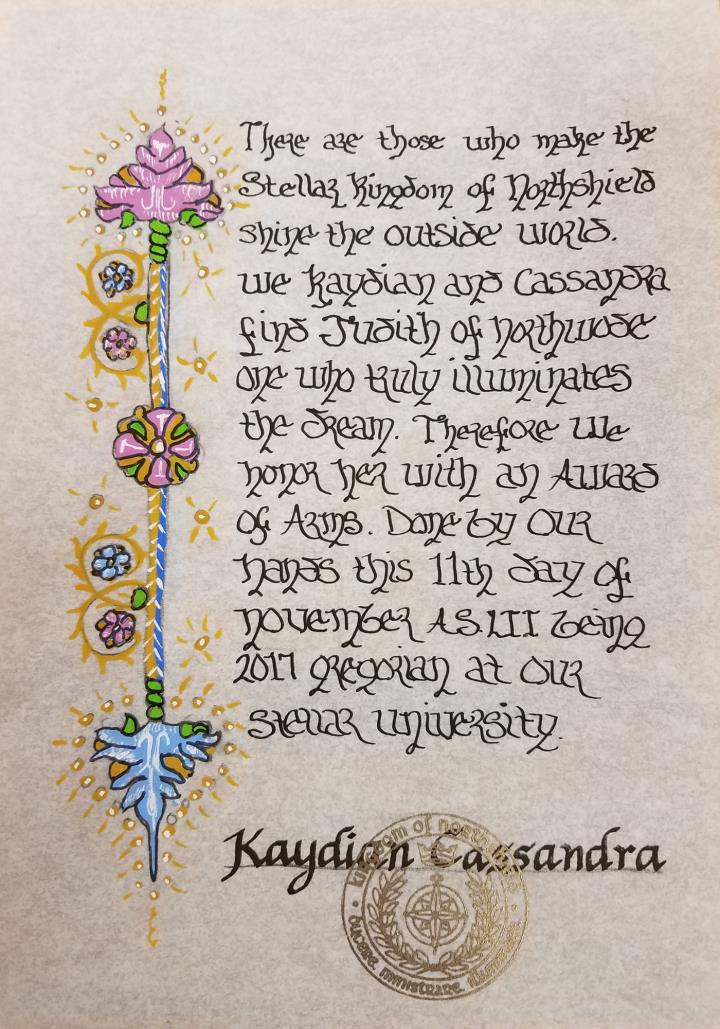 There are those who make the
Stellar Kingdom of Northshield
shine the outside world.
We Kaydian and Cassandra
find Judith of Northwode
one who truly illuminates
the dream. Therefore We
honor her with an Award
of Arms. Done by Our
hands this 11th day of
november A.S.LII being
2017 gregorian at Our
Stellar University.
Kaydian Cassandra
kingdom of
ducere ministrare